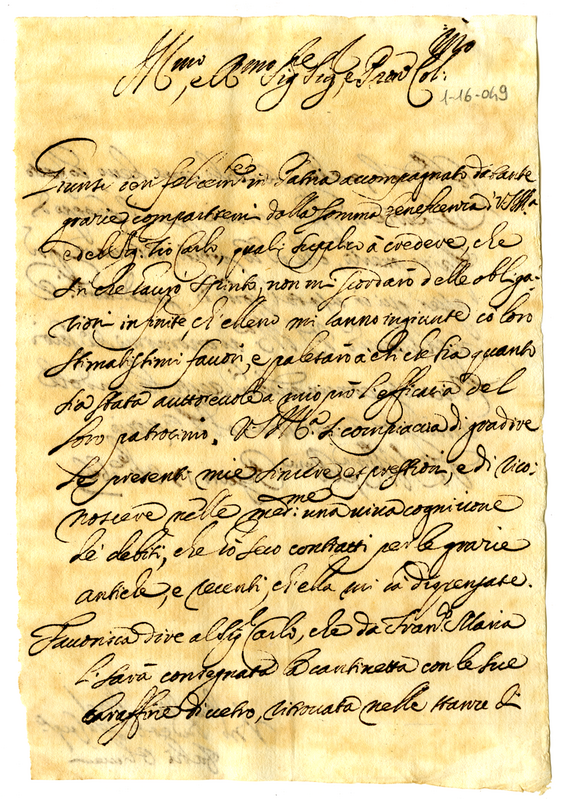 Ill.mo e R.mo Sig. Sig. e Pron. Col.mo
1-16-049
Giunsi con felicità in Patria accompagnato da tante
grazie compartitemi dalla somma beneficenza di V.S. Ill.ma
e del Sig. Tio Carlo, quali supplico à credere, che
sin che haurò spirito, non mi scordarò delle obliga-
tioni infinite, ch'elleno mi hanno ingiunte co loro
stimatissimi fauori, e palesarò à chi che sia quanto
sia stata auttoreuole a mio prò l'efficacia del
loro patrocinio. V.S. Ill.ma si compiaccia di gradire
le presenti mie sincere espressioni, e di rico-
noscere nelle med.me una uiua cognitione
de debiti, che tò seco contratti per le grazie
antiche, e recenti, ch'ella mi hà dispensate.
Fauorisca dire al Sig. Carlo, che da Fran.co Maria
li sarà consegnata la cantinetta con le sue
caraffine di uetro, ritrouata nelle stanze di